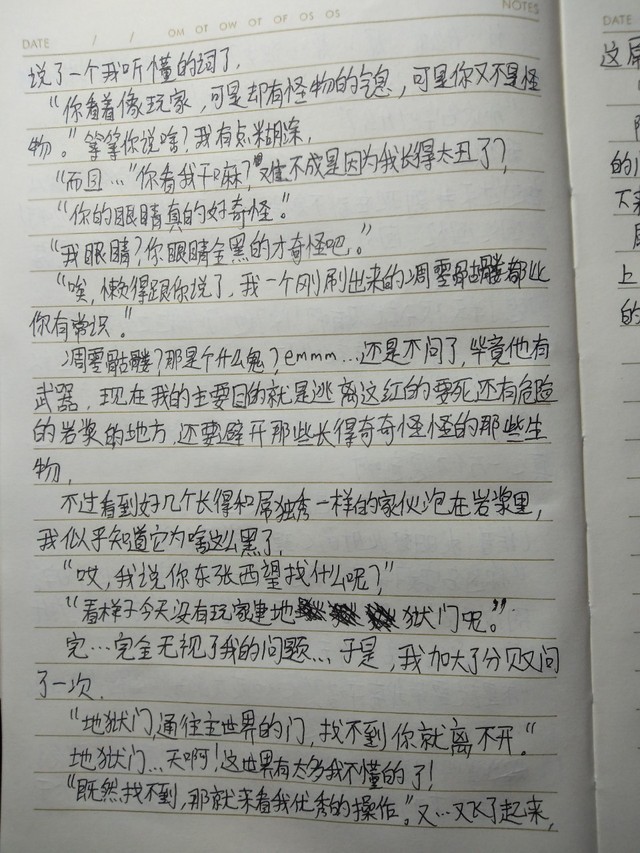 DATE / / OM OT OW OT OF OS OS NOTES
DATE
说了一个我听懂的词了.
“你看着像玩家,可是却有怪物的气息,可是你又不是怪
物。”等等你说啥?我有点糊涂,
“而且…”你看我干麻?难不成是因为我长得太丑了?
“你的眼睛真的好奇怪。”
“我眼睛?你眼睛全黑的才奇怪吧。”
“唉,懒得跟你说了,我一个刚刷出来的凋零骷髅都比
你有常识。”
凋零骷髅?那是个什么鬼?emmm…还是不问了,毕竟他有
武器,现在我的主要目的就是逃离这红的要死还有危险
的岩浆的地方,还要避开那些长得奇奇怪怪的那些生
物,
不过看到好几个长得和屌独秀一样的家伙泡在岩浆里,
我似乎知道它为啥这么黑了,
“哎,我说你东张西望找什么呢?”
“看样子今天没有玩家建地狱门呢。”
完…完全无视了我的问题…于是,我加大了分贝又问
了一次.
“地狱门,通往主世界的门,找不到你就离不开。”
地狱门…天啊!这世界有太多我不懂的了!
“既然找不到,那就来看我优秀的操作。”又…又飞了起来,
这屌
的
下来
上
的